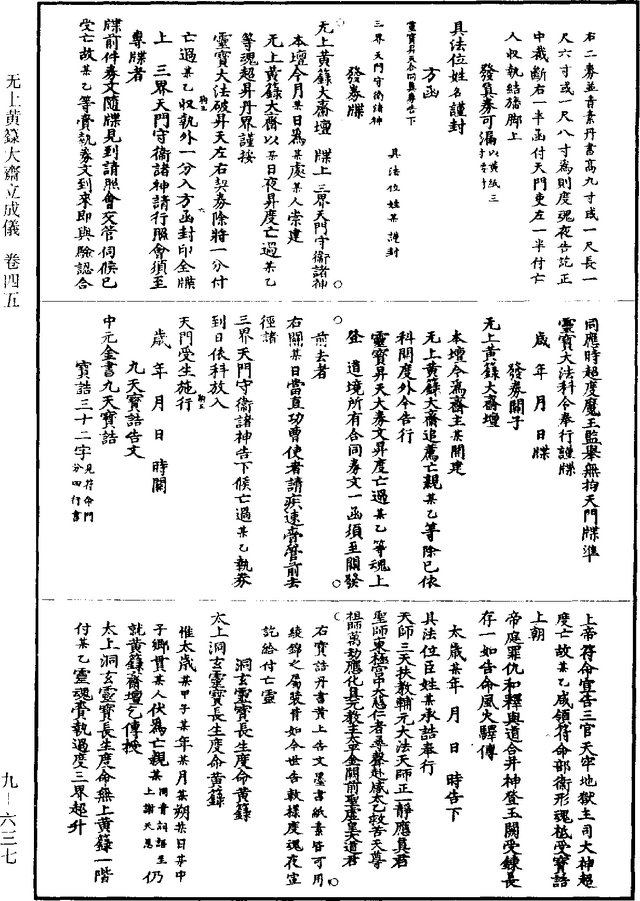 右二券並青素丹書高九寸或一尺長一
尺六寸或一尺八寸為則度魂夜告訖正
中裁斷右一半函付天門吏左一半付亡
人收執結璘脚上
發真券可漏以黃紙三
具法位姓名謹封
方函
靈寶昇天合同真券告下
三界天門守衛諸神
具法位姓某謹封
發券牒
无上黃籙大齋壇 牒上三界天門守衛諸神
本壇今月某日為某處某人崇建
无上黃籙大齋以某日夜昇度亡過某乙
等魂超昇丹界謹按
靈寶大法破昇天左右契券除將一分付
亡過某乙收執外一分入方函封印全牒
上 三界天門守衛諸神請行照會須至
專牒者
牒前件券文隨牒見到請照會交管伺候已
受亡故某乙等賫執券文到來即與驗認合
同應時超度魔王監舉無拘天門牒準
靈寶大法科令奉行謹牒
歲 年 月 日牒
發券關子
无上黃籙大齋壇
本壇今為齋主某開建
无上黃籙大齋追薦亡親某乙等除已依
科開度外今告行
靈寶昇天大券文昇度亡過某乙等魂上
登 道境所有合同券文一函須至關發
前去者
右關某日當直功曹使者請疾速齎管前去
徑諸
三界天門守衛諸神告下候亡過某乙執券
到日依科放入
天門受生施行
歲 年 月 日 時關
九天寶誥告文
中元金書九天寶誥
寶誥三十二字見符命門分四行書
上帝符命宣告三官天牢地獄主司大神超
度亡故某乙咸領符命部衛形魂祗受寶誥
上朝
帝庭罪仇和釋與道合并神登玉闕受鍊長
存一如告命風火驛傳
太歲某年 月 日 時告下
具法位臣姓某承誥奉行
天師三天扶教輔元大法天師正一靜應真君
聖師東極宮中大慈仁者尋聲赴感太乙救苦天尊
祖師萬劫應化具元教主太章金闕前聖虛皇大道君
右寶誥丹書黃上告文墨書紙素皆可用
綾錦之屬裝背如今世告敕樣度魂夜宣
訖給付亡靈
洞玄靈寶長生度命黃籙
太上洞玄靈寶長生度命黃籙
惟太歲某甲子某年某月某朔某日某甲
子鄉貫某人伏為亡親某同青詞語至上謝天恩仍
就黃籙齋壇乞傳授
太上洞玄靈寶長生度命無上黃籙一階
付某乙靈魂賫執過度三界超升
无上黃籙大齋立成儀 卷四五
九－六三七